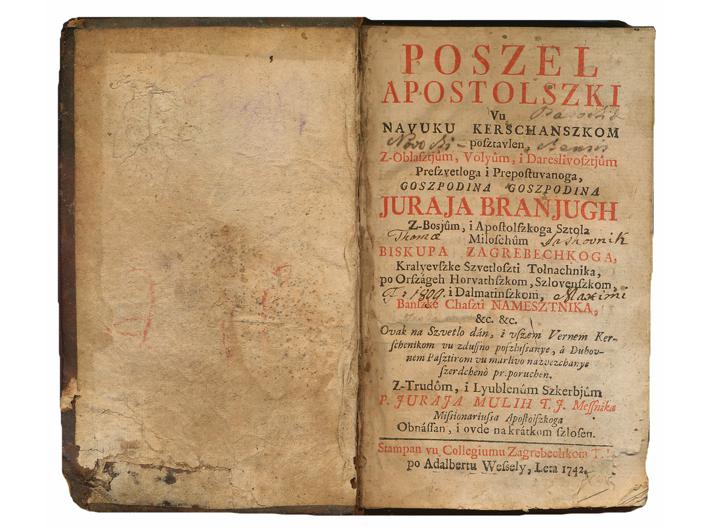 POSZEL
APOSTOLSZKI
Vu
NAVUKU KERSCHANSZKOM
Novo posztavlen,
Z-Oblasztjûm, Volyûm, i Dareslivosztjûm
Preszvetloga i Prepostuvanoga,
GOSZPODINA GOSZPODINA
JURAJA BRANJUGH
Z-Bosjûm, i Apostolszkoga Sztola
Thomæ Miloschûm
BISKUPA ZAGREBECHKOGA,
Kralyevszke Szvetloszti Tolnachnika,
po Országeh Horvathszkom, Szlovenszkom,
1809. i Dalmatinszkom, Maximi
Banszke Chaszti NAMESZTNIKA,
&c. &c.
Ovak na Szvetlo dán, i vszem Vernem Ker-
schenikom vu zdussno poszlussanye, à Duhov-
nem Pasztirom vu marlivo nazvezchanye
szerdchenò pr.poruchen.
Z-Trudôm, i Lyublenûm Szkerbjûm
P. JURAJA MULIH T. J. Messnika
Missionariussa Apostolszkoga
Obnássan, i ovde na krátkom szlosen.
Stampan vu Collegiumu Zagrebechkom T.
po Adalbertu Wessely, Leta 1742.